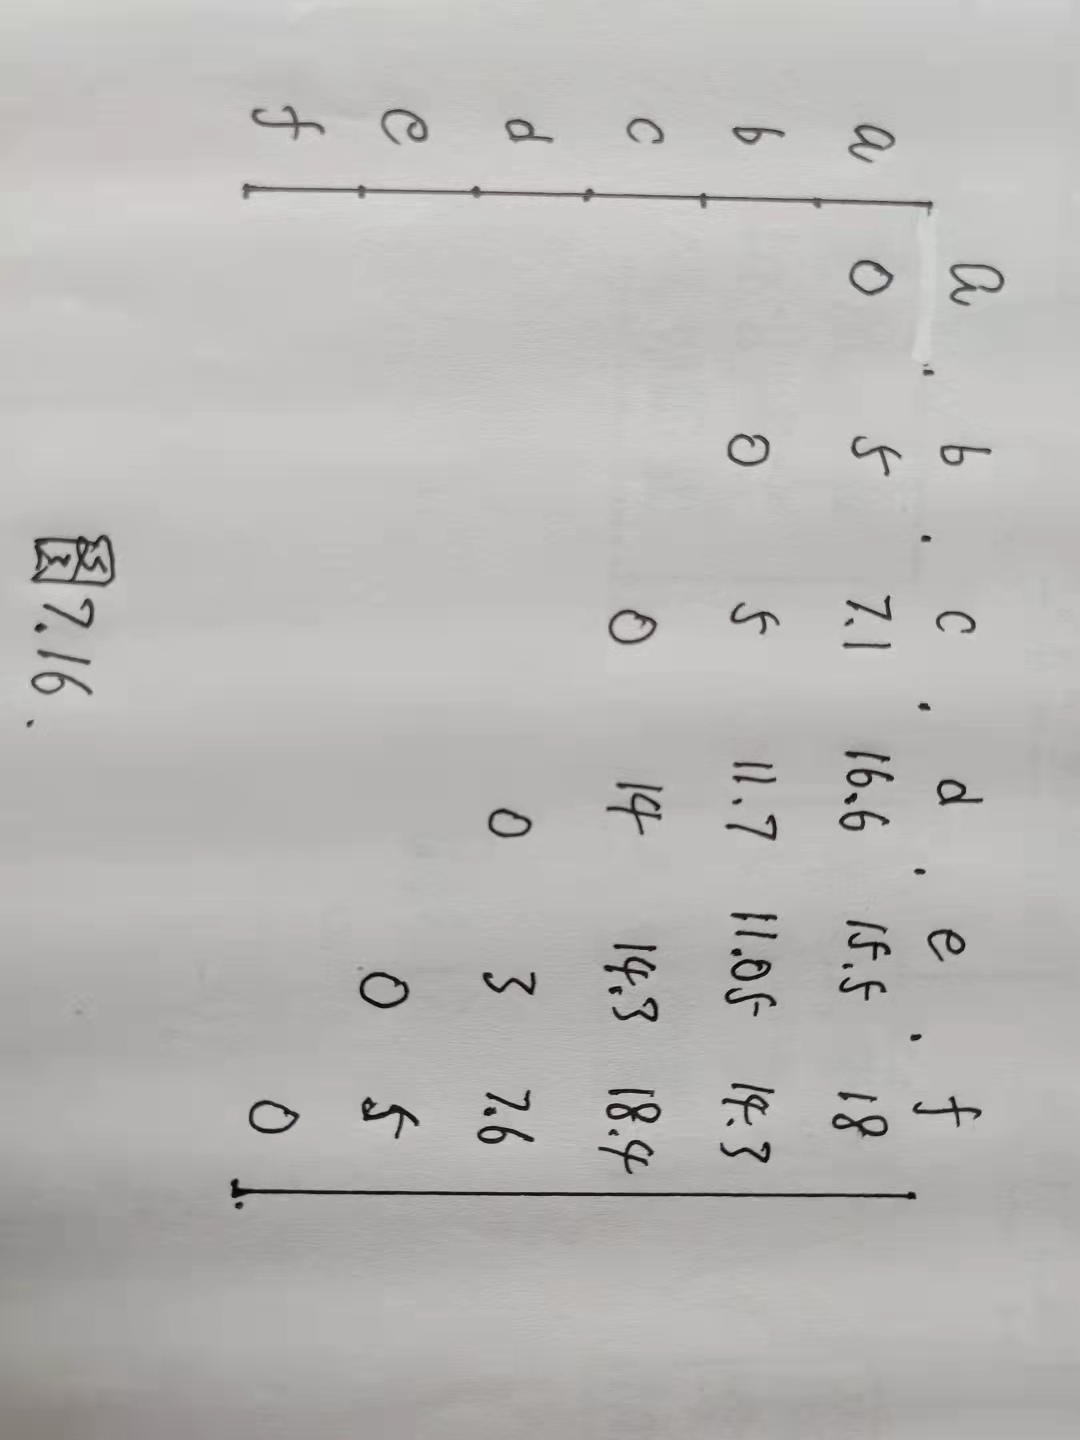 a b c d e f
a 0 5 7.1 16.6 15.5 18
b 0 5 11.7 11.05 14.3
c 0 14 14.3 18.4
d 0 3 7.6
e 0 5
f 0
图7.16.